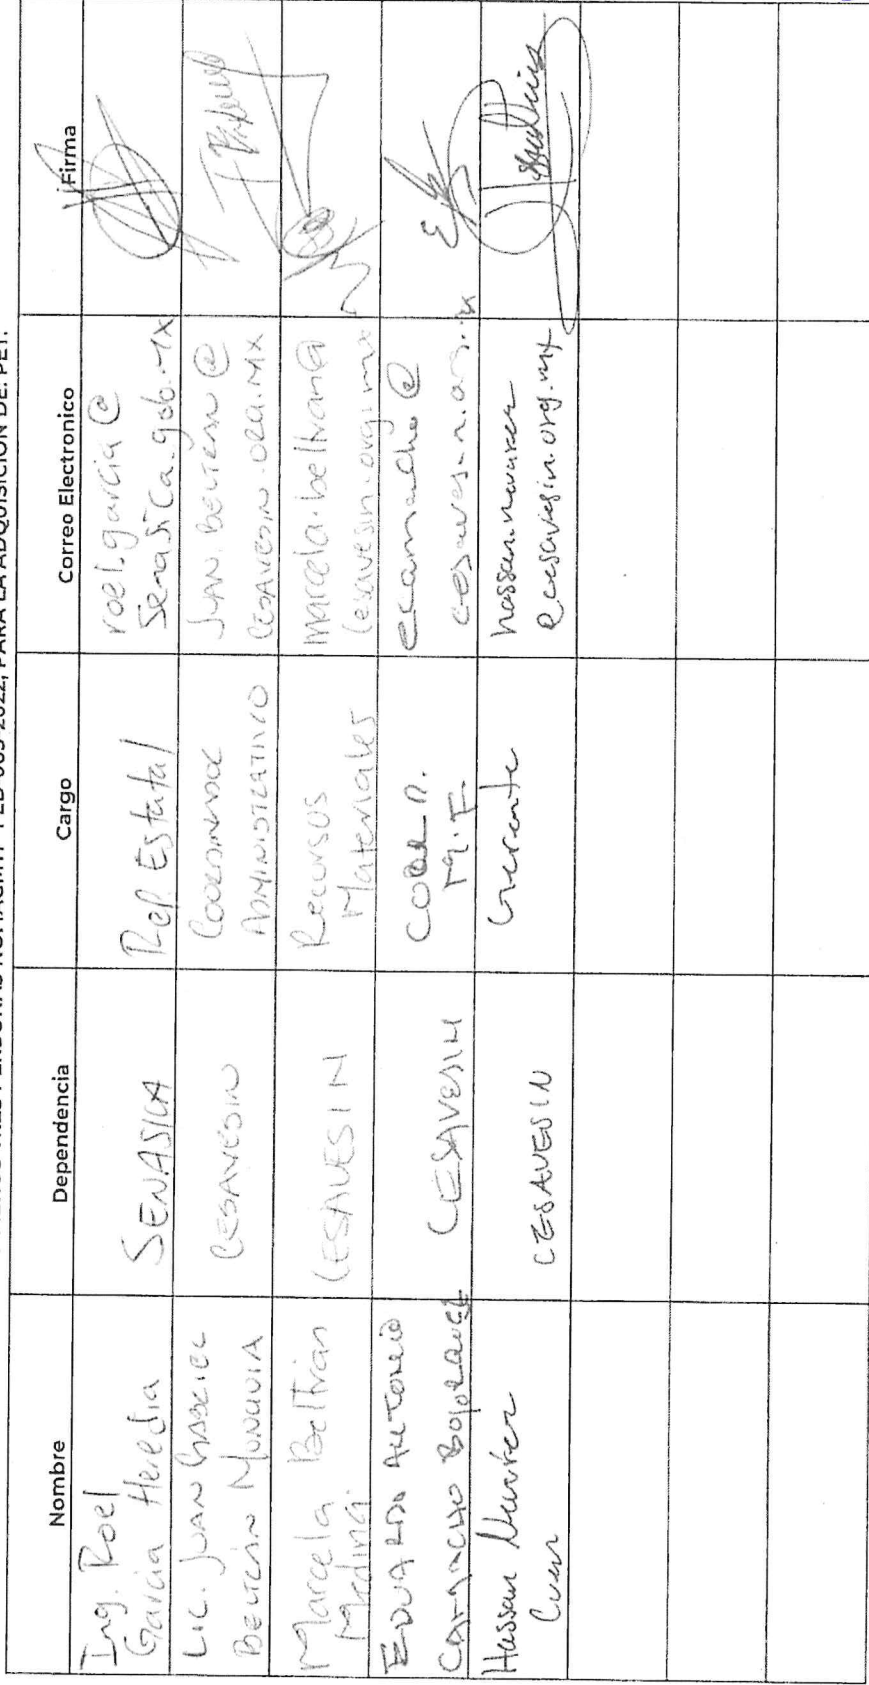 PARA LA ADQUISICIÓN DE: PET.
Nombre Dependencia Cargo Correo Electronico Firma
Ing. Roel
Garcia Heredia
SENASICA
Rep. Estatal
roel.garcia@
senasica.gob.mx
Lic. JUAN GABRIEL
BELTRÁN MONCIVIA
CESAVESIN
COORDINADOR
ADMINISTRATIVO
JUAN.BELTRAN@
CESAVESIN.ORG.MX
Marcela Beltran
Medina.
CESAVESIN
Recursos
Materiales
marcela.beltran@
cesavesin.org.mx
EDUARDO ANTONIO
CAMACHO BOJORQUEZ
CESAVESIN
COORD.
M.F.
ecamacho@
Hassan
CESAVESIN
Gerente
@cesavesin.org.mx